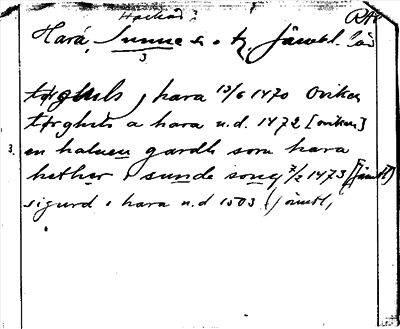 Hackås?
RAP
Hara, Sunne s. o tg Jämtl. län
3
tørghuls j hara 13/6 1470 Oviken
tørghuls a hara u.d. 1472 [oviken]
3. en haluen gardh som hara
hether i sunde song 7/2 1473 (Jämtl)
sigurd i hara u.d 1503 (Jämtl,